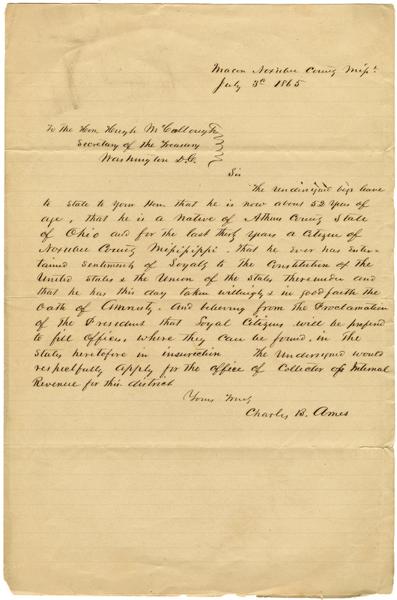 Macon Noxubee County Missi
July 3d 1865
To The Hon Hough McCullough
Secretary of the Treasury
Washington D.C.
Sir
The Undersigned begs leave
to state to Your Hon that he is now about 52 Years of
age, that he is a Native of Athens County State
of Ohio and for the last thirty Years a Citizen of
Noxubee County Mississippi. that he ever has enter-
tained sentiments of Loyalty to the Constitution of the
United States & the Union of the States thereunder and
that he has this day taken willingly & in good faith the
Oath of Amnesty. And believing from the Proclamation
of the President that Loyal Citizens will be prefered
to fill Offices, where they can be found, in the
States heretofore in insurection. The Undersigned would
respectfully apply for the Office of Collector of Internal
Revenue for this district
Yours Truly
Charles B. Ames